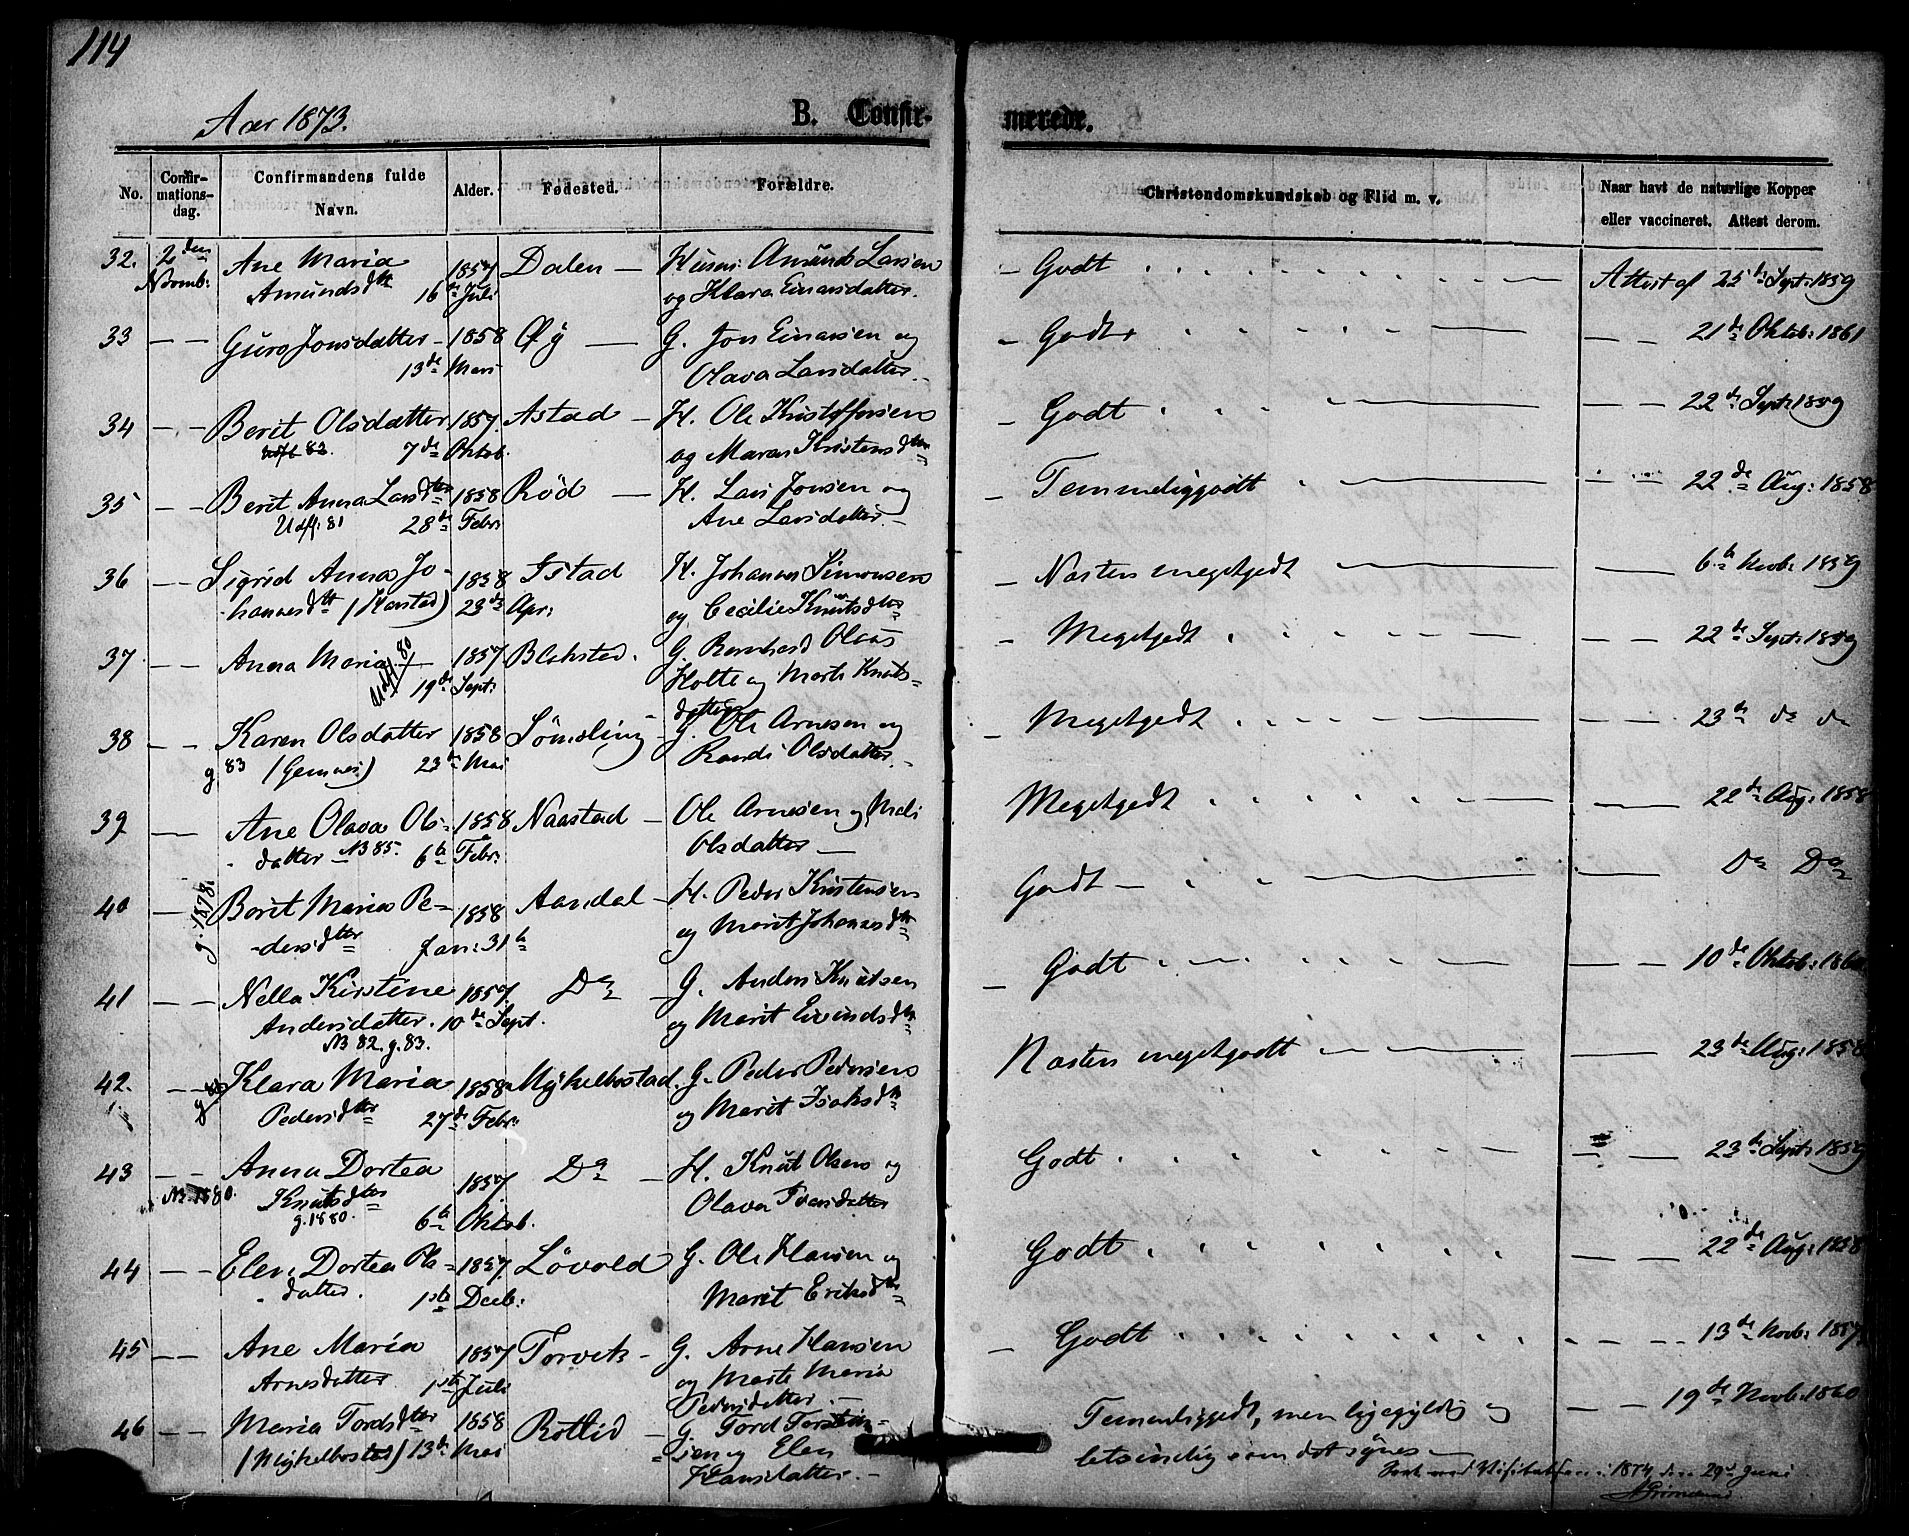 114
Aar 1873.
B. Confir-
merede.
No.
Confir-
mations-
dag.
Confirmandens fulde
Navn.
Alder.
Fødested.
Forældre.
Christendomskundskab og Flid m. v.
Naar havt de naturlige Kopper
eller vaccineret. Attest derom.
32. 2den Ane Maria 1857 Dalen — Amund Larsen — Godt Attest af 25de Sept: 1859
Amundsdtr 16de Juli og Klara Einarsdatter.
33 — — Guro Jonsdatter 1858 Øy — G. Jon Einarsen og — Godt — — 21de Oktob: 1861
13de Mars Olava Larsdatter.
34 — — Berit Olsdatter 1857. Astad — H. Ole Kristoffersen — Godt — — 22de Sept: 1859
83. 7de Oktob. og Maren Kristensdtr
35 — — Berit Anna Larsdtr 1858 Rød — H. Lars Jonsen og — Temmeliggodt 22de Aug: 1858
Udfl: 81 28de Febr: Ane Larsdatter.
36 — — Sigrid Anna Jo- 1858 H. Johannes Simonsen — Næsten megetgodt — — 6te Novb: 1859
hannesdtr 23de Apr: og Cecilie Knutsdtr
37 — — Anna Maria 1857 G. Bernhard Olaus — Megetgodt — — 22de Sept: 1859
Udfl. 80 19de Sept: Holte og Marti Knuts-
datter
38 — — Karen Olsdatter 1858 G. Ole Arnesen og — Megetgodt — — 23de do do
g 83 23de Mai Randi Olsdatter.
39 — — Ane Olava Ols- 1858 Naastad — Ole Arnesen og Mali Megetgodt — — 22de Aug: 1858
datter — NB 85. 6te Febr: Olsdatter —
40 — Berit Maria Pe- 1858 Aandal — H. Peder Kristensen Godt — — — Do Do
g. 1878. dersdtr Jan: 31te og Marit Johannesdtr
41 — — Nella Kirstine 1857. Do — G. Anders Knutsen — Godt — — 10de Oktob:
Andersdatter. 10de Sept. og Marit Eivindsdtr
NB 82. g. 83.
42. — Klara Maria 1858 Myklebostad. G. Peder Pedersen Næsten megetgodt — — 23de Aug: 1858
Pedersdtr 27de Febr: og Marit Isaksdtr
43 — — Anna Dortea 1857 Do H. Knut Olsen og Godt — — 23de Sept: 1859
NB 1880. Knutsdtr 6te Oktob. Olava Iversdatter
g. 1880.
44 — — Elen Dortea Ols- 1857. Løvold G. Ole Hansen og Godt — — 22de Aug: 1858
datter. 1ste Decb: Marit Eriksdtr
45 — — Ane Maria 1857 Torvik — G. Arne Hansen — Godt 13de Novb:
Arnesdatter 1ste Juli og Marte Maria
Pedersdatter. —
46 — — Maria Tordsdtr 1858 — G. Tord Torstein- Temmeliggodt, men ligegyldig og — — 19de Novb: 1860
(Myklebostad) 13de Mai sen og Elen letsindig som det synes —
Hansdatter. —
Visitatsen i 1874 den 29de Juni